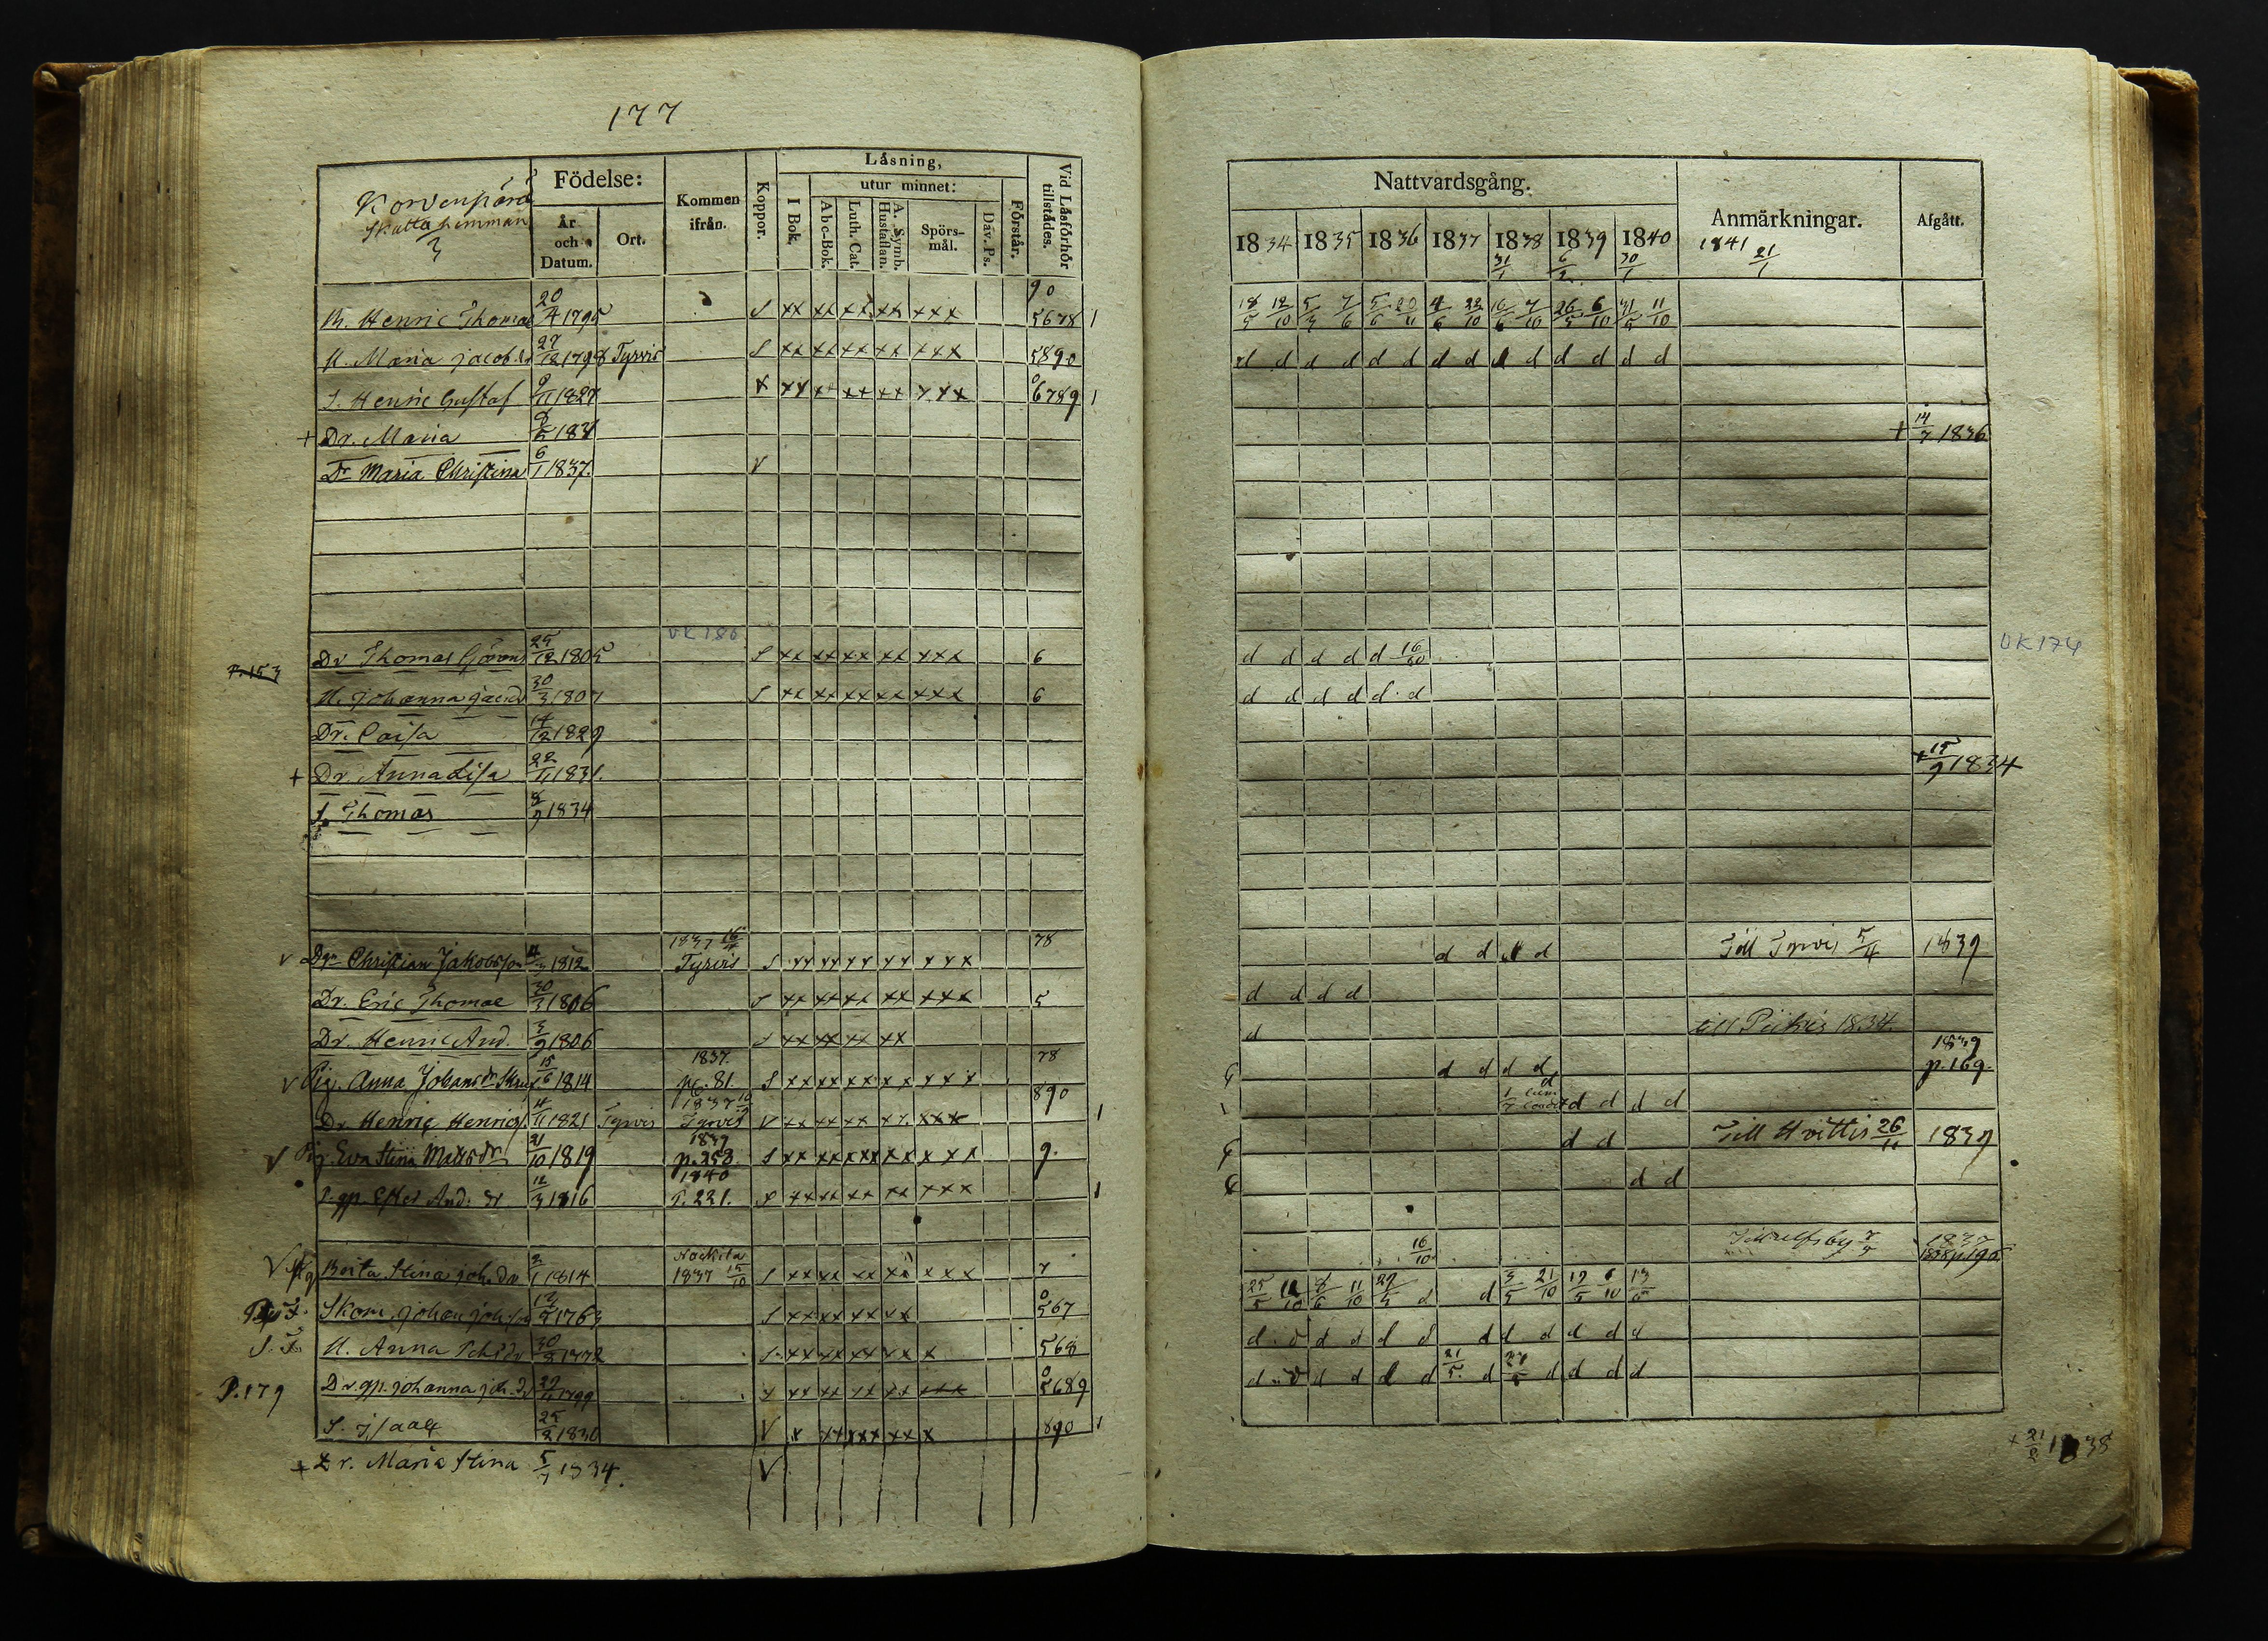 177
Korvenpörö
Skatte hemman
3
Födelse:
År och Datum.
Ort.
Kommen ifrån.
Koppor.
Låsning,
utur minnet:
I Bok.
Abc-Bok.
Luth. Cat.
A. Symb. Hustaflan.
Spörs-mål.
Dav. Ps.
Förstår.
Vid Låsförhör tillstädes.
Nattvardsgång.
1834 1835 1836 1837 1838 1839 1840
31/1 30/1
Anmärkningar.
1841 21/1
Afgått.
B. Henric Thomae 20/4 1795 S xx xx xx xx xxx 90 5678 1
18/5 12/10 7/6 4/6 22/10 16/6 7/10 26/5 6/10 31/5 11/10
H. Maria Jacob.dr 27/12 1798 Tyrvis S xx xx xx xx xxx 5890
d d d d d d d d d d d d d d
S. Henric Gustaf 9/11 1827 x xx xx xx xx xxx 0 6789 1
+ Dr. Maria 1831 + 14/7 1836
Dr Maria Christina 6/1 1837. V
UK 186
P. 153 Dr Thomas Görans 25/12 1805 S xx xx xx xx xxx 6
d d d d d 16/10 UK 174
H. Johanna Jac.dr 30/3 1807 S xx xx xx xx xxx 6
d d d d d d
Dr. Caisa 14/12 1829
+ Dr. Anna Lisa 22/11 1831. + 15/9 1834
S. Thomas 8/9 1834
1837 16/11 78
v Dgr Christian Jakobsson 1812 Tyrvis S xx xx xx xx xxx
d d d d Till Tyrvis 5/4 1839
Dr. Eric Thomae 30/3 1806 S xx xx xx xx xxx 5
d d d d
Dr. Henric And. 3/9 1806 S xx xx xx xx
d till Piikis 1834.
v Pig. Anna Johansdr 15/6 1814 1837. pg. 81. S xx xx xx xx xxx 78
d d d d 1839 p. 169.
Dr. Henric Henrics. 4/11 1821 Tyrvis 1837 10/ Tyrvis V xx xx xx xx. xxx 890 1
d d d d
V Pig. Eva Stina Mattsdr 21/10 1819 1839 p. 253. S xx xx xx xx xxx 9.
d d Till Hvittis 26/11 1839
P. gp. Ester And: dr 12/3 1816 1840 P. 221. S xx xx xx xx xxx 1
d d
V Pig Brita Stina joh. Dr 3/1 1814 Nackila 1837 15/10 S xx xx xx xx xxx 7
16/10 Till Ulfsby 1837
Skom. Johan joh.son 1763 S xx xx xx xx 0 567
25/5 12/10 8/6 11/10 29/5 d d 3/5 21/10 19/5 6/10 13/6
H. Anna 30/8 1772 S xx xx xx xx x 568
d d d d d d d d d d d d
P. 179 Dr. gp. johanna joh. Dr 1799 xx xx xx xx xxx 0 5689
d d d d d d 21/5. d d d d d
S. Isaac 25/2 1830 V x xx xxx xx x 890 1
+ Dr. Maria Stina 5/7 1834. V
+ 21/2 1838